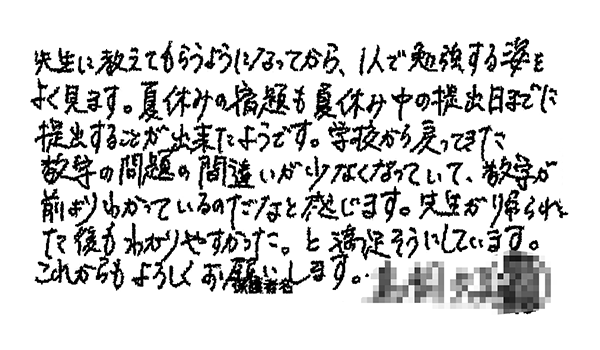 先生に教えてもらうようになってから、1人で勉強する姿を
よく見ます。夏休みの宿題も夏休み中の提出日までに
提出することが出来たようです。学校から戻ってきた
数学の問題の間違いが少なくなっていて、数学が
前よりわかっているのだなと感じます。先生がり帰られ
た後もわかりやすかった。と満足そうにしています。
これからもよろしくお願いします。
保護者名